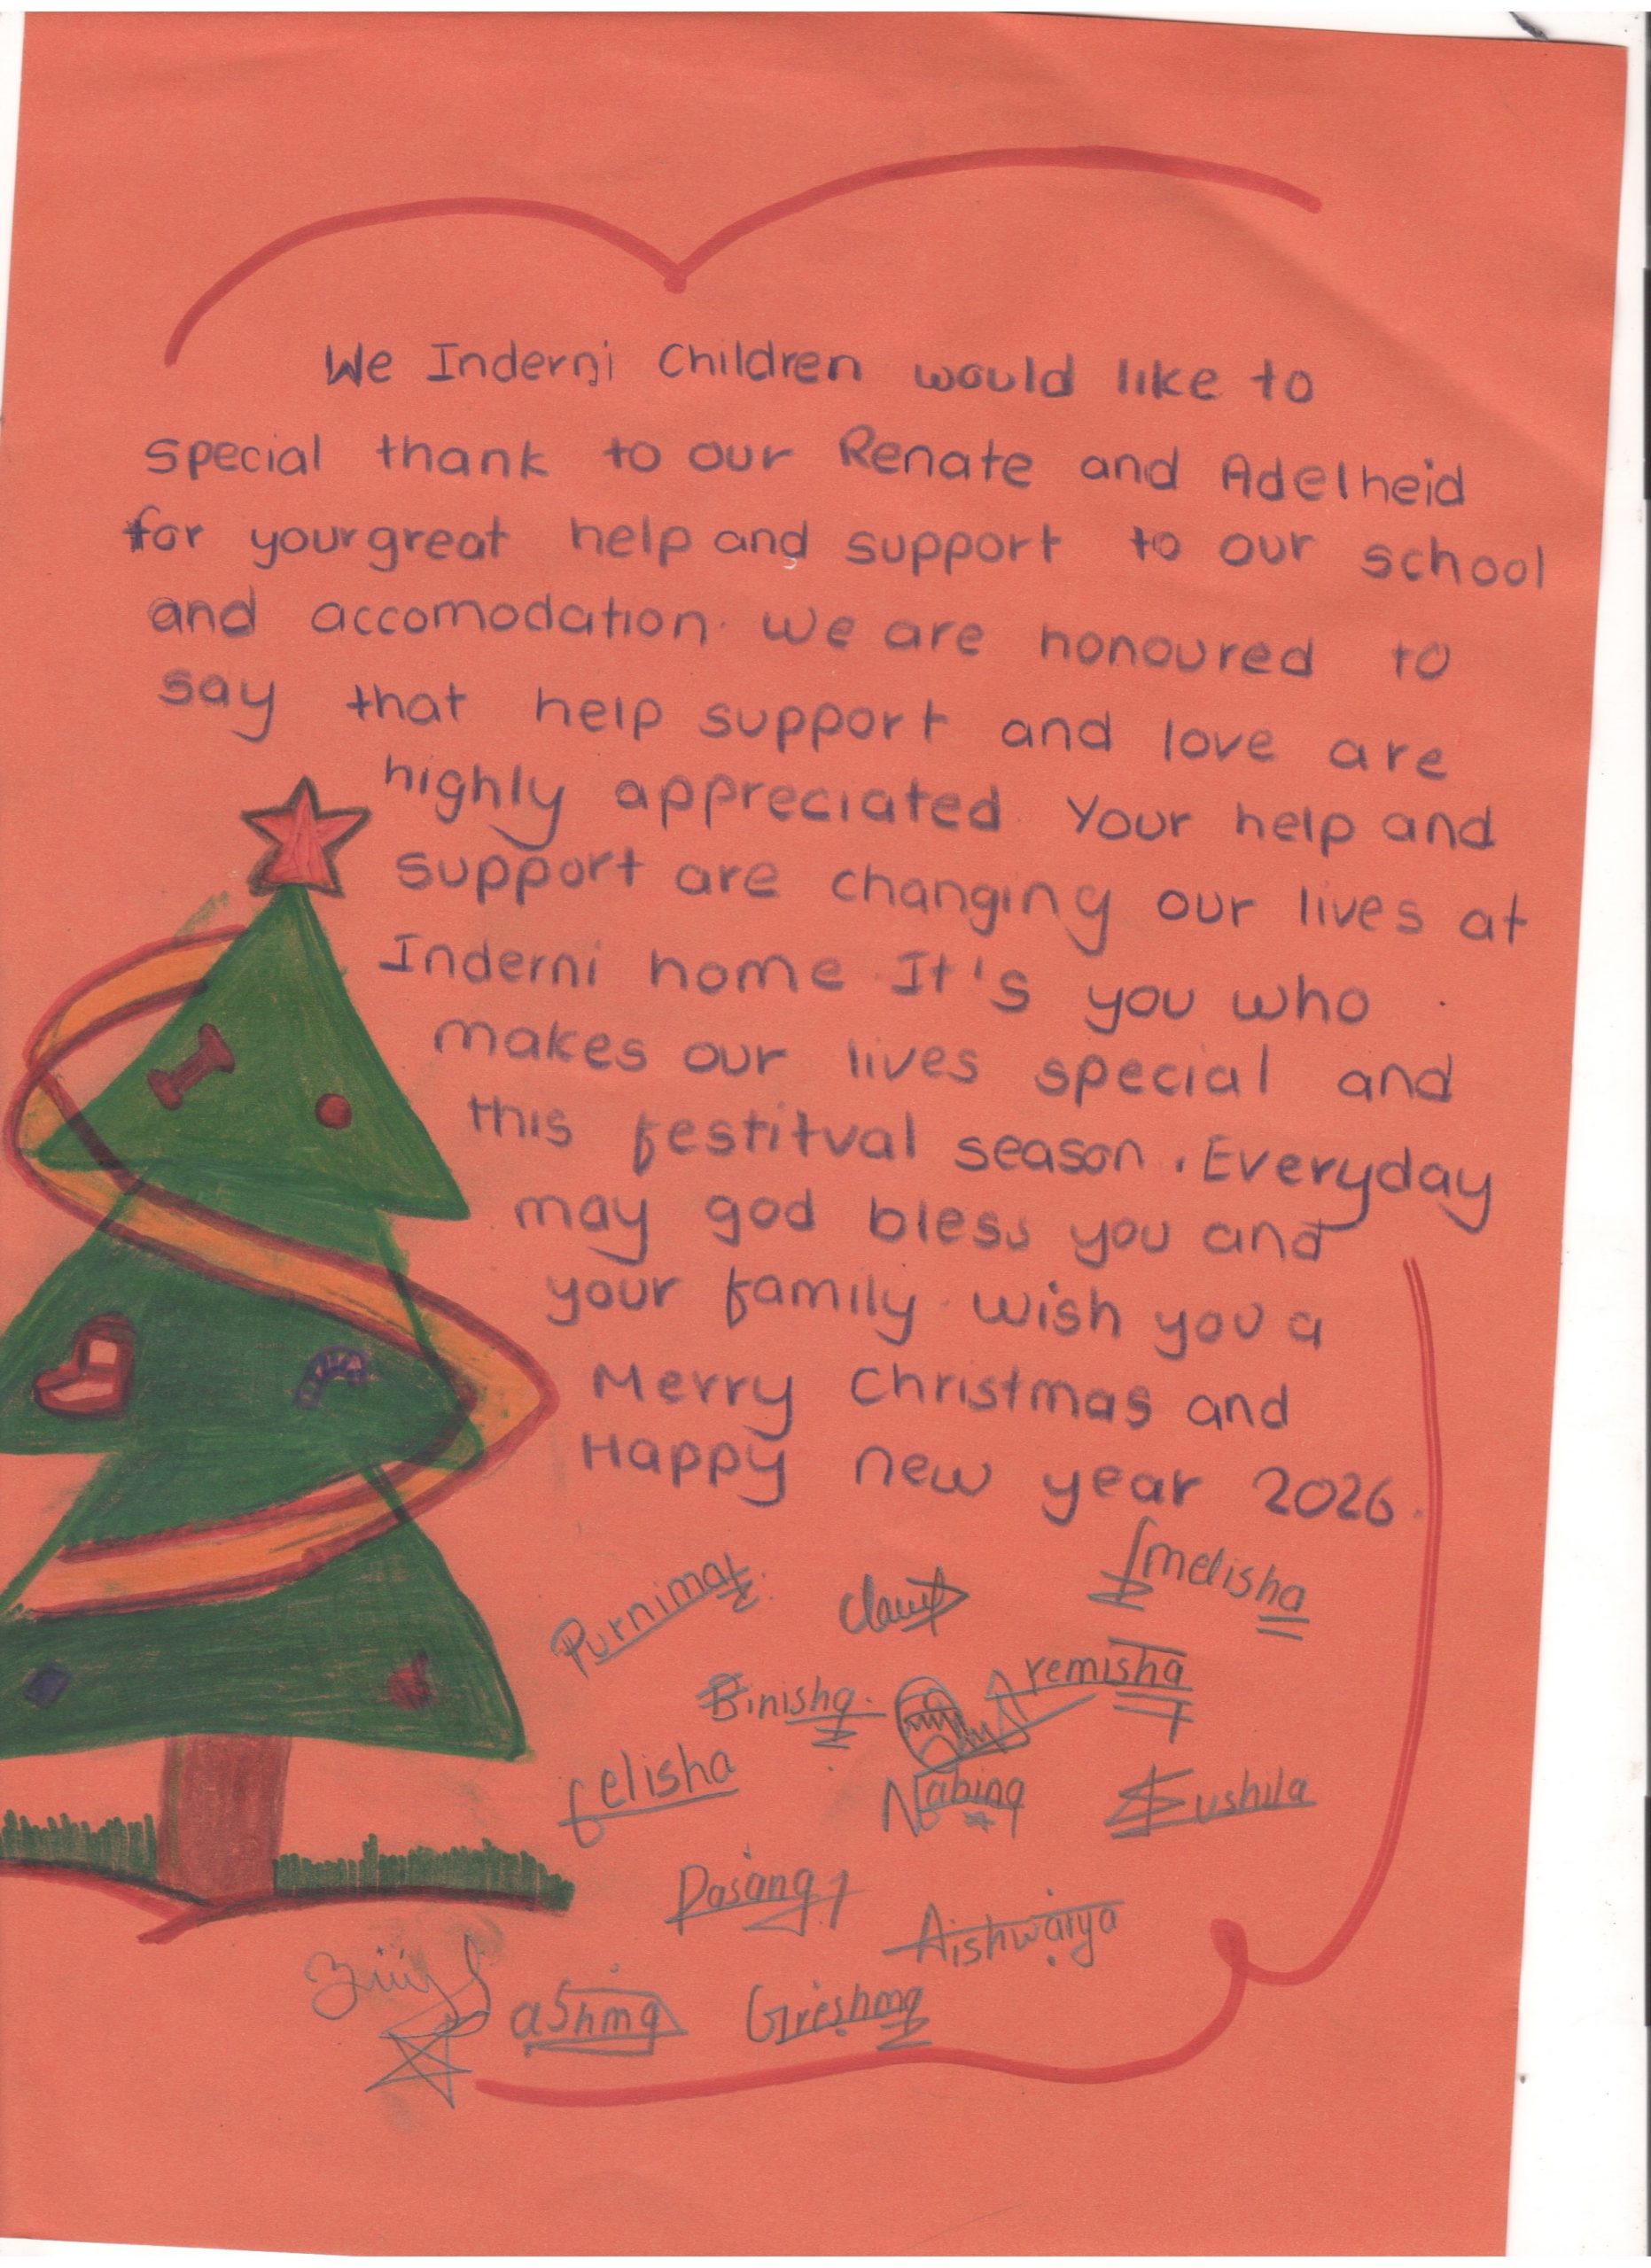 We Inderni Children would like to
special thank to our Renate and Adelheid
for your great help and support to our school
and accomodation. We are honoured to
say that help support and love are
highly appreciated. Your help and
support are changing our lives at
Inderni home It's you who
makes our lives special and
this festitval season. Everyday
may god bless you and
your family. wish you a
Merry Christmas and
Happy new year 2026.
Purnima
Imelisha
Binisha
remisha
felisha
Nabina
Sushila
Pasang
Aishwarya
aShma
Grieshma